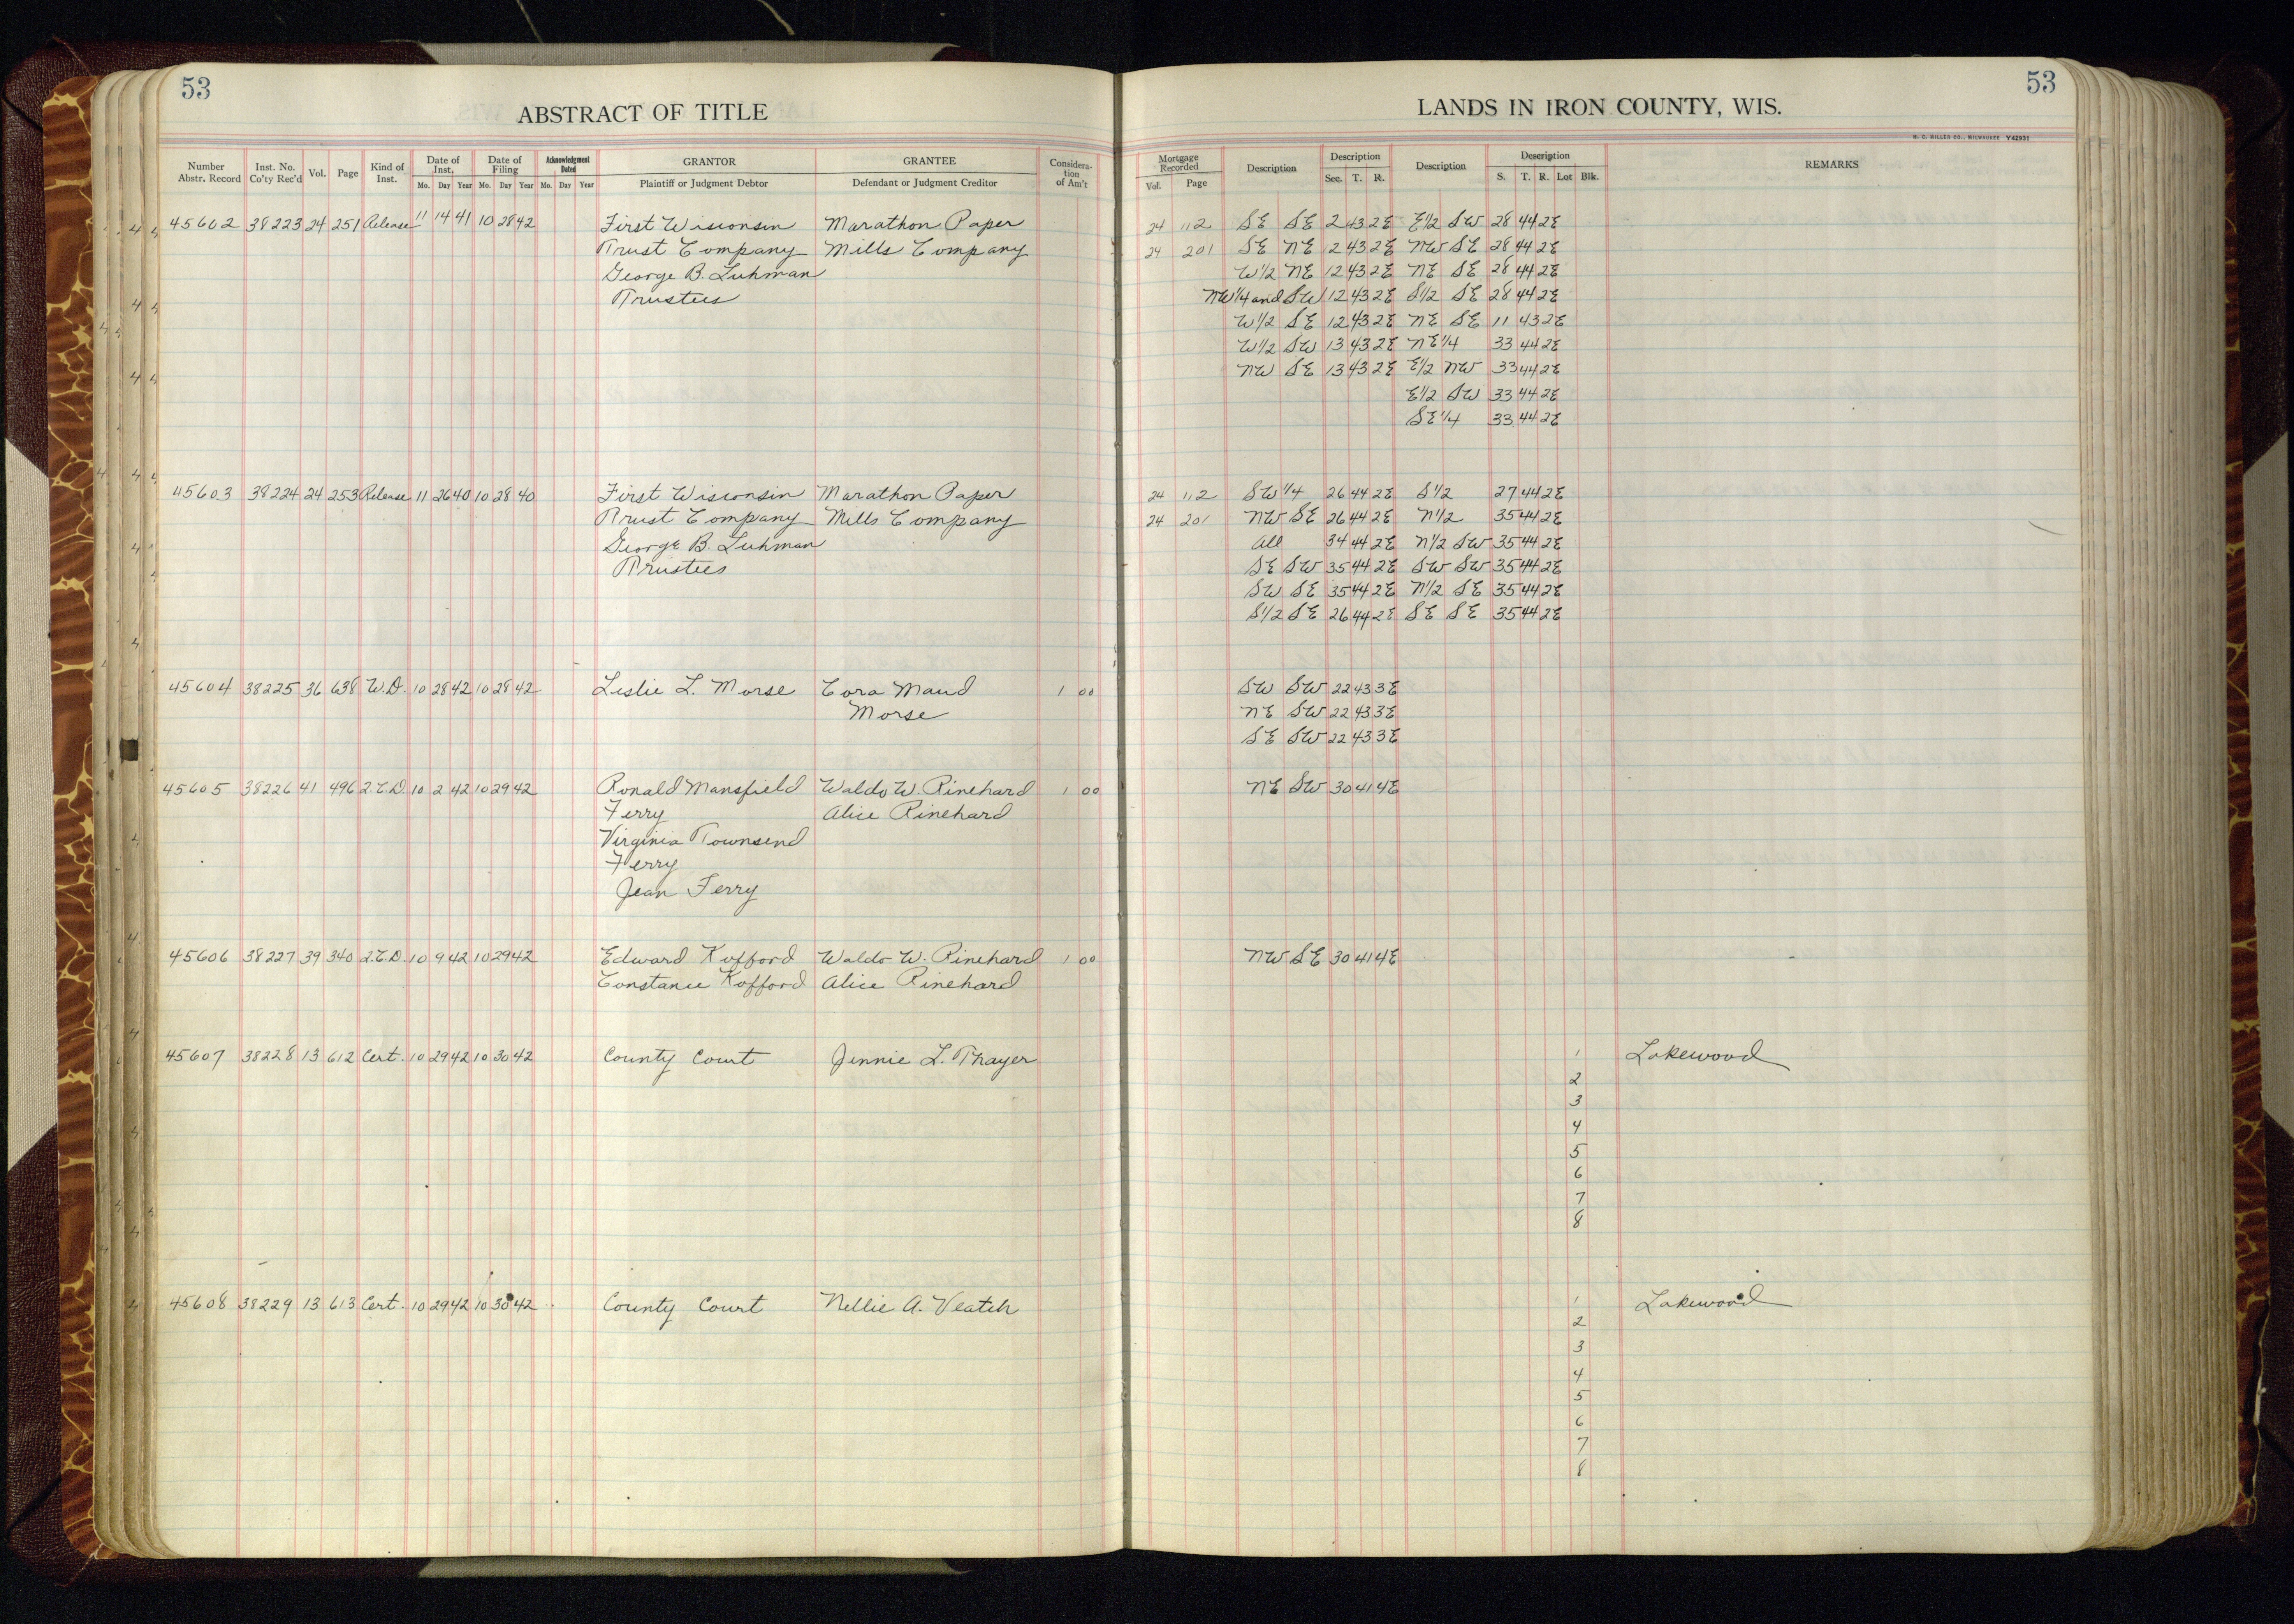 53
ABSTRACT OF TITLE
LANDS IN IRON COUNTY, WIS.
53
H. C. MILLER CO., MILWAUKEE Y42931
Number Abstr. Record Inst. No. Co'ty Rec'd Vol. Page Kind of Inst. Date of Inst. Mo. Day Year Date of Filing Mo. Day Year Acknowledgment Dated Mo. Day Year GRANTOR Plaintiff or Judgment Debtor GRANTEE Defendant or Judgment Creditor Considera-tion of Am't Mortgage Recorded Vol. Page Description Description Sec. T. R. Description Description S. T. R. Lot Blk. REMARKS
45602 38223 24 251 Release 11 14 41 10 28 42 First Wisconsin Marathon Paper 24 112 SE SE 2 43 2E E1/2 SW 28 44 2E
Trust Company Mills Company 24 201 SE NE 12 43 2E NW SE 28 44 2E
George B. Luhman W1/2 NE 12 43 2E NE SE 28 44 2E
Trustees NW1/4 and SW 12 43 2E S1/2 SE 28 44 2E
W1/2 SE 12 43 2E NE SE 11 43 2E
W1/2 SW 13 43 2E NE1/4 33 44 2E
NW SE 13 43 2E E1/2 NW 33 44 2E
E1/2 SW 33 44 2E
SE1/4 33 44 2E
45603 38224 24 253 Release 11 26 40 10 28 40 First Wisconsin Marathon Paper 24 112 SW1/4 26 44 2E S1/2 27 44 2E
Trust Company Mills Company 24 201 NW SE 26 44 2E N1/2 35 44 2E
George B. Luhman All 34 44 2E N1/2 SW 35 44 2E
Trustees SE SW 35 44 2E SW SW 35 44 2E
SW SE 35 44 2E N1/2 SE 35 44 2E
S1/2 SE 26 44 2E SE SE 35 44 2E
45604 38225 36 638 W.D. 10 28 42 10 28 42 Leslie L. Morse Cora Maud 1 00 SW SW 22 43 3E
Morse NE SW 22 43 3E
SE SW 22 43 3E
45605 38226 41 496 2.C.D. 10 2 42 10 29 42 Ronald Mansfield Waldo W. Rinehard 1 00 NE SW 30 41 4E
Ferry Alice Rinehard
Virginia Townsend
Ferry
Jean Ferry
45606 38227 39 340 2.C.D. 10 9 42 10 29 42 Edward Kofford Waldo W. Rinehard 1 00 NW SE 30 41 4E
Constance Kofford Alice Rinehard
45607 38228 13 612 Cert. 10 29 42 10 30 42 County Court Jennie L. Thayer 1 Lakewood
2
3
4
5
6
7
8
45608 38229 13 613 Cert. 10 29 42 10 30 42 County Court Nellie A. Veatch 1 Lakewood
2
3
4
5
6
7
8